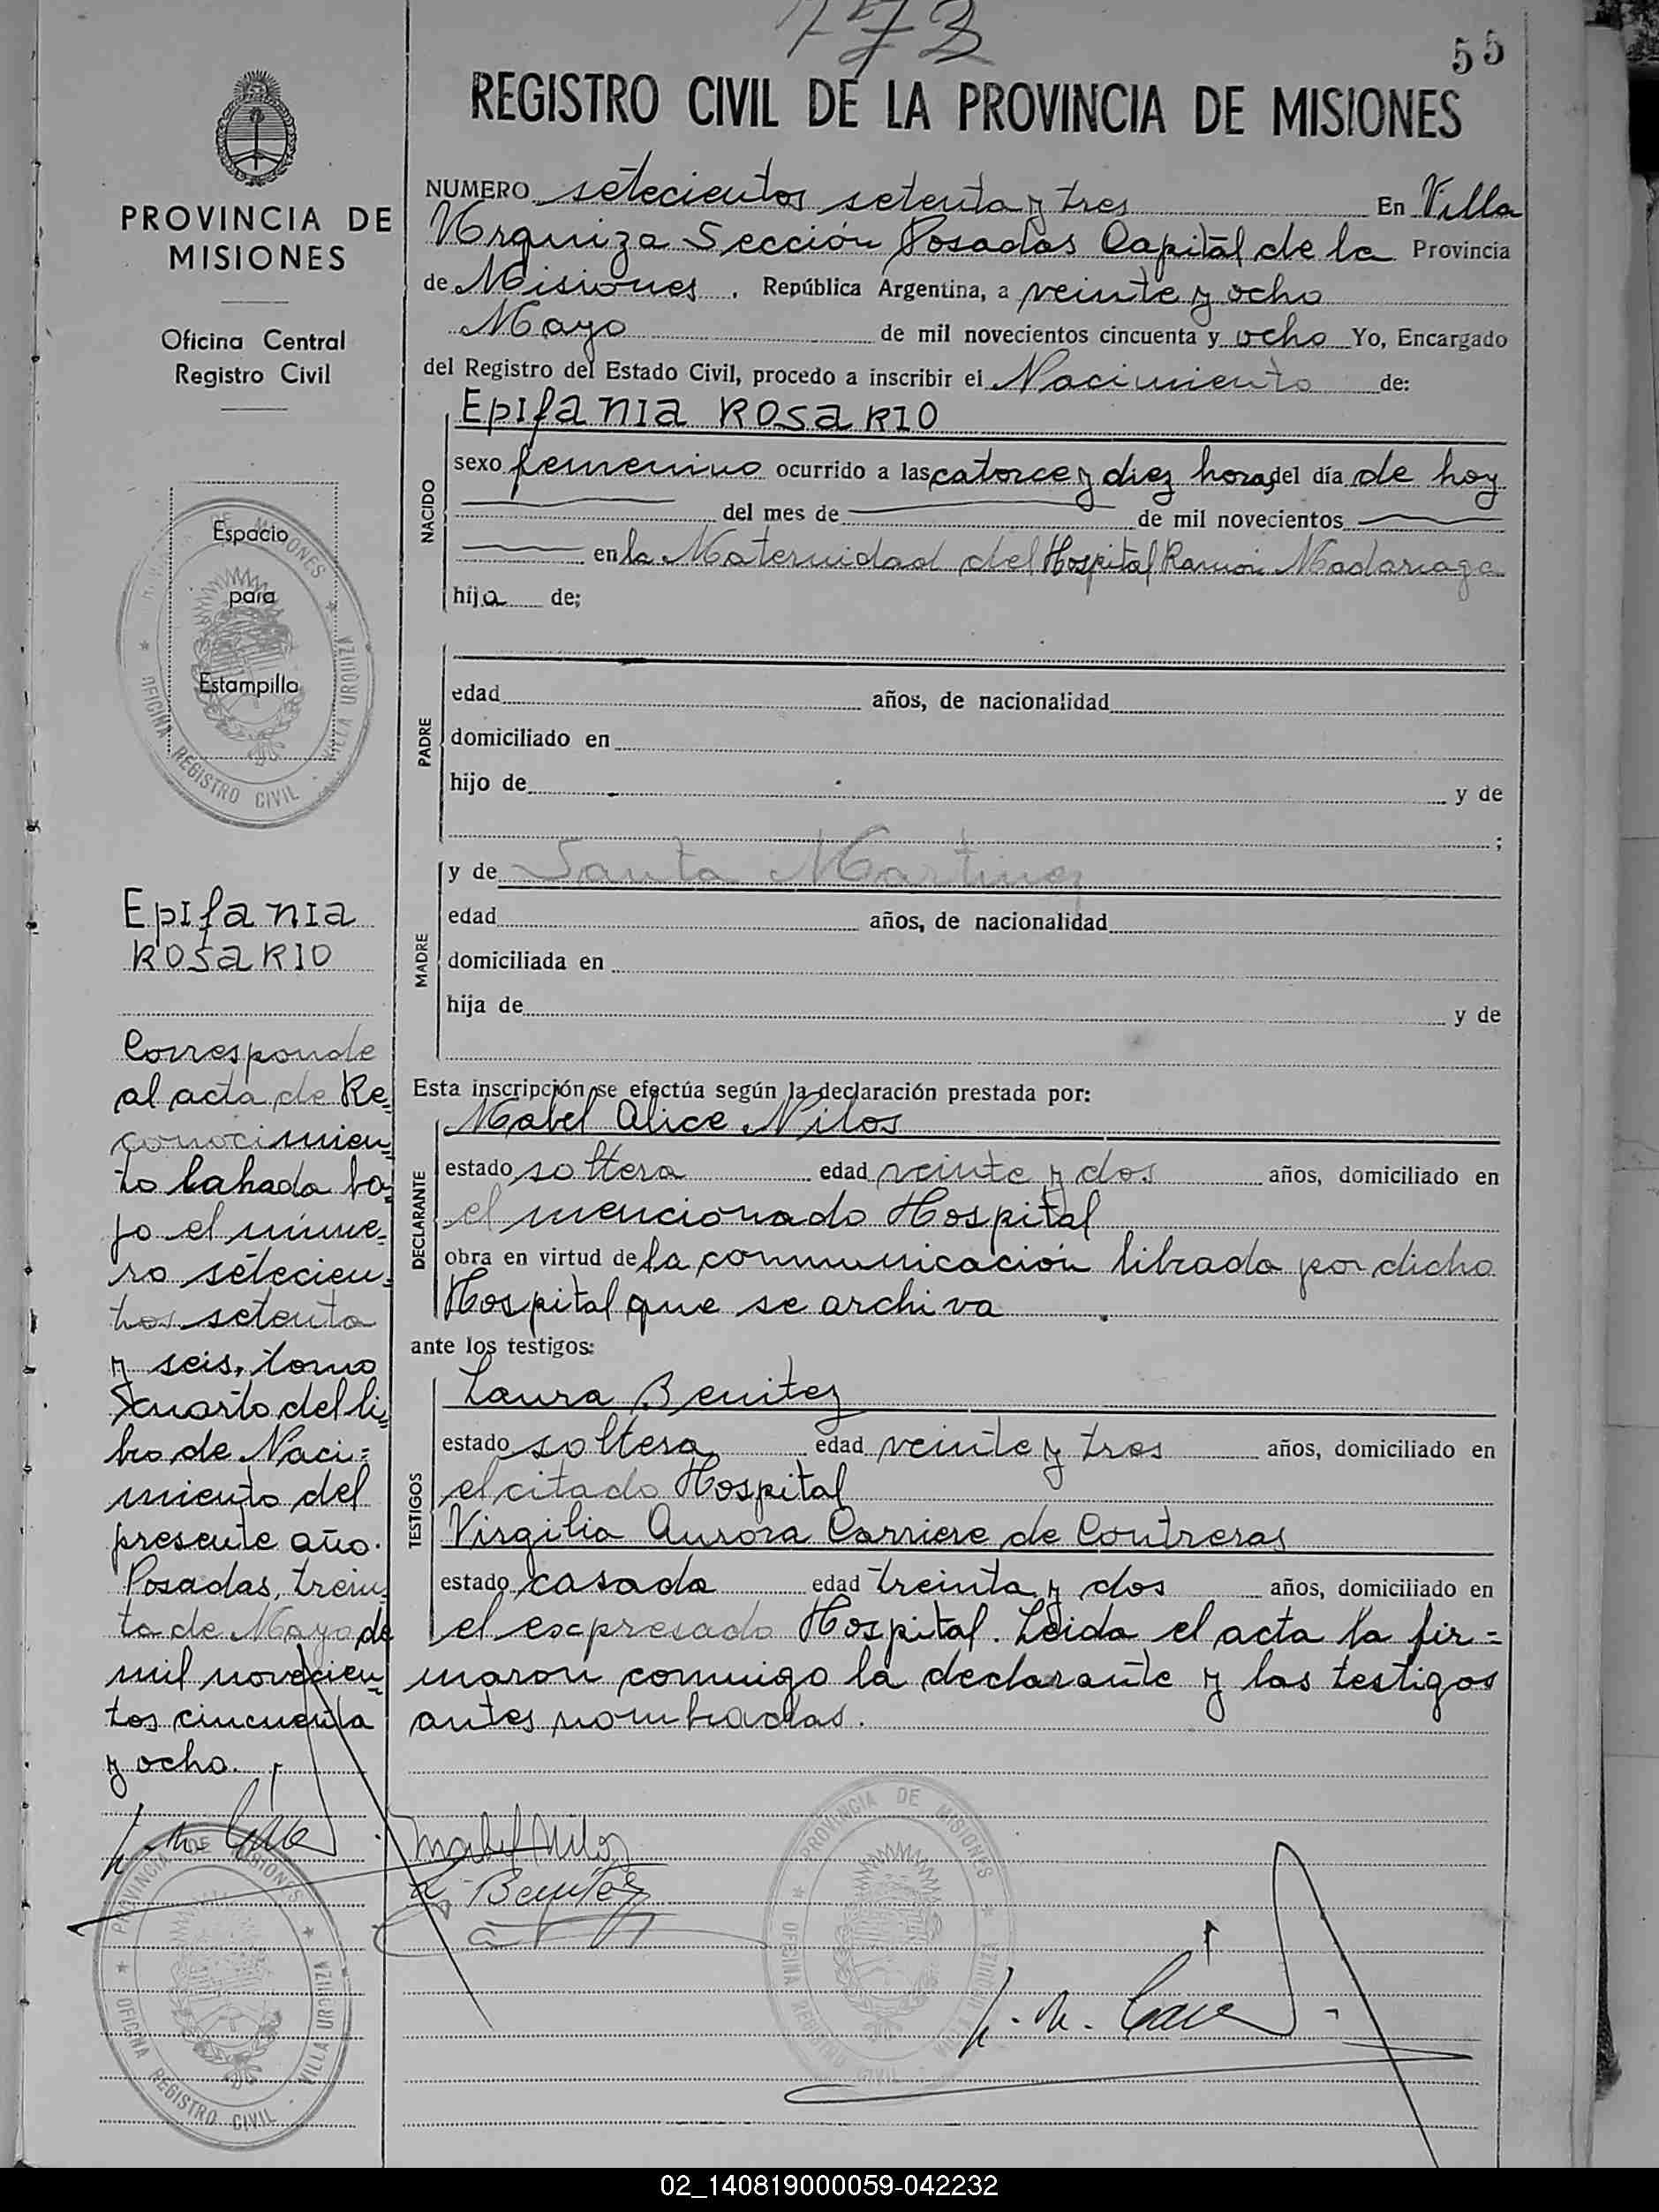 773
55
REGISTRO CIVIL DE LA PROVINCIA DE MISIONES
PROVINCIA DE
MISIONES
Oficina Central
Registro Civil
Espacio
para
Estampilla
PROVINCIA DE MISIONES
OFICINA REGISTRO CIVIL - VILLA URQUIZA
Epifania
Rosario
Corresponde
al acta de Re=
conocimien=
to labrada ba=
jo el núme=
ro setecien=
tos setenta
y seis, tomo
cuarto del li=
bro de Naci=
miento del
presente año.
Posadas, trein=
ta de Mayo de
mil novecien=
tos cincuenta
y ocho.
PROVINCIA DE MISIONES
OFICINA REGISTRO CIVIL - VILLA URQUIZA
NUMERO setecientos setenta y tres En Villa
Urquiza Sección Posadas Capital de la Provincia
de Misiones . República Argentina, a veinte y ocho
Mayo de mil novecientos cincuenta y ocho Yo, Encargado
del Registro del Estado Civil, procedo a inscribir el Nacimiento de:
NACIDO
Epifania Rosario
sexo femenino ocurrido a las catorce y diez horas del día de hoy
del mes de de mil novecientos
en la Maternidad del Hospital Ramón Madariaga
hija de;
PADRE
edad años, de nacionalidad
domiciliado en
hijo de y de
;
MADRE
y de Santa Martinez
edad años, de nacionalidad
domiciliada en
hija de y de
Esta inscripción se efectúa según la declaración prestada por:
DECLARANTE
Mabel Alice Nilos
estado soltera edad veinte y dos años, domiciliado en
el mencionado Hospital
obra en virtud de la communicación librada por dicho
Hospital que se archiva.
ante los testigos:
TESTIGOS
Laura Benitez
estado soltera edad veinte y tres años, domiciliado en
el citado Hospital
Virgilia Aurora Carriere de Contreras
estado casada edad treinta y dos años, domiciliado en
el expresado Hospital. Leida el acta la fir=
maron conmigo la declarante y las testigos
antes nombradas.
Mabel Nilos
L. Benitez
PROVINCIA DE MISIONES
OFICINA REGISTRO CIVIL - VILLA URQUIZA
02_140819000059-042232